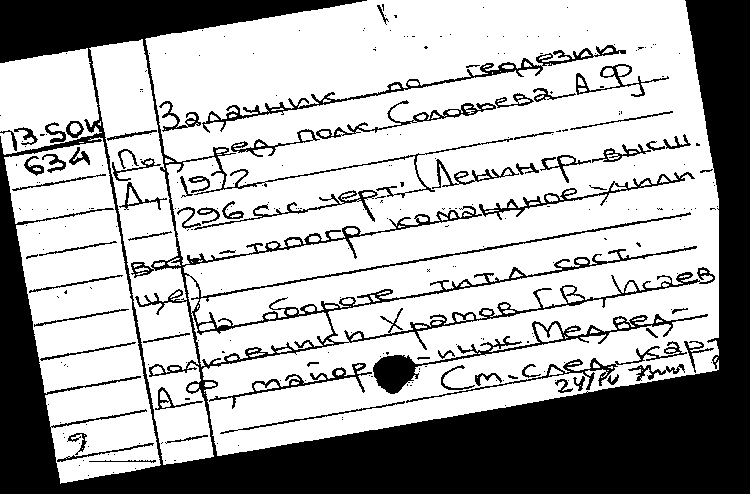 Задачник по геодезии.
73-50к
634
Под ред. полк. Соловьева А.Ф,
Л., 1972.
296 с. с черт; (Ленингр. высш.
воен-топогр командное учили-
ще).
На обороте тит.л сост:
полковники Храмов Г.В., Исаев
А.Ф, майор-инж. Медвед-
См. след. карт
9